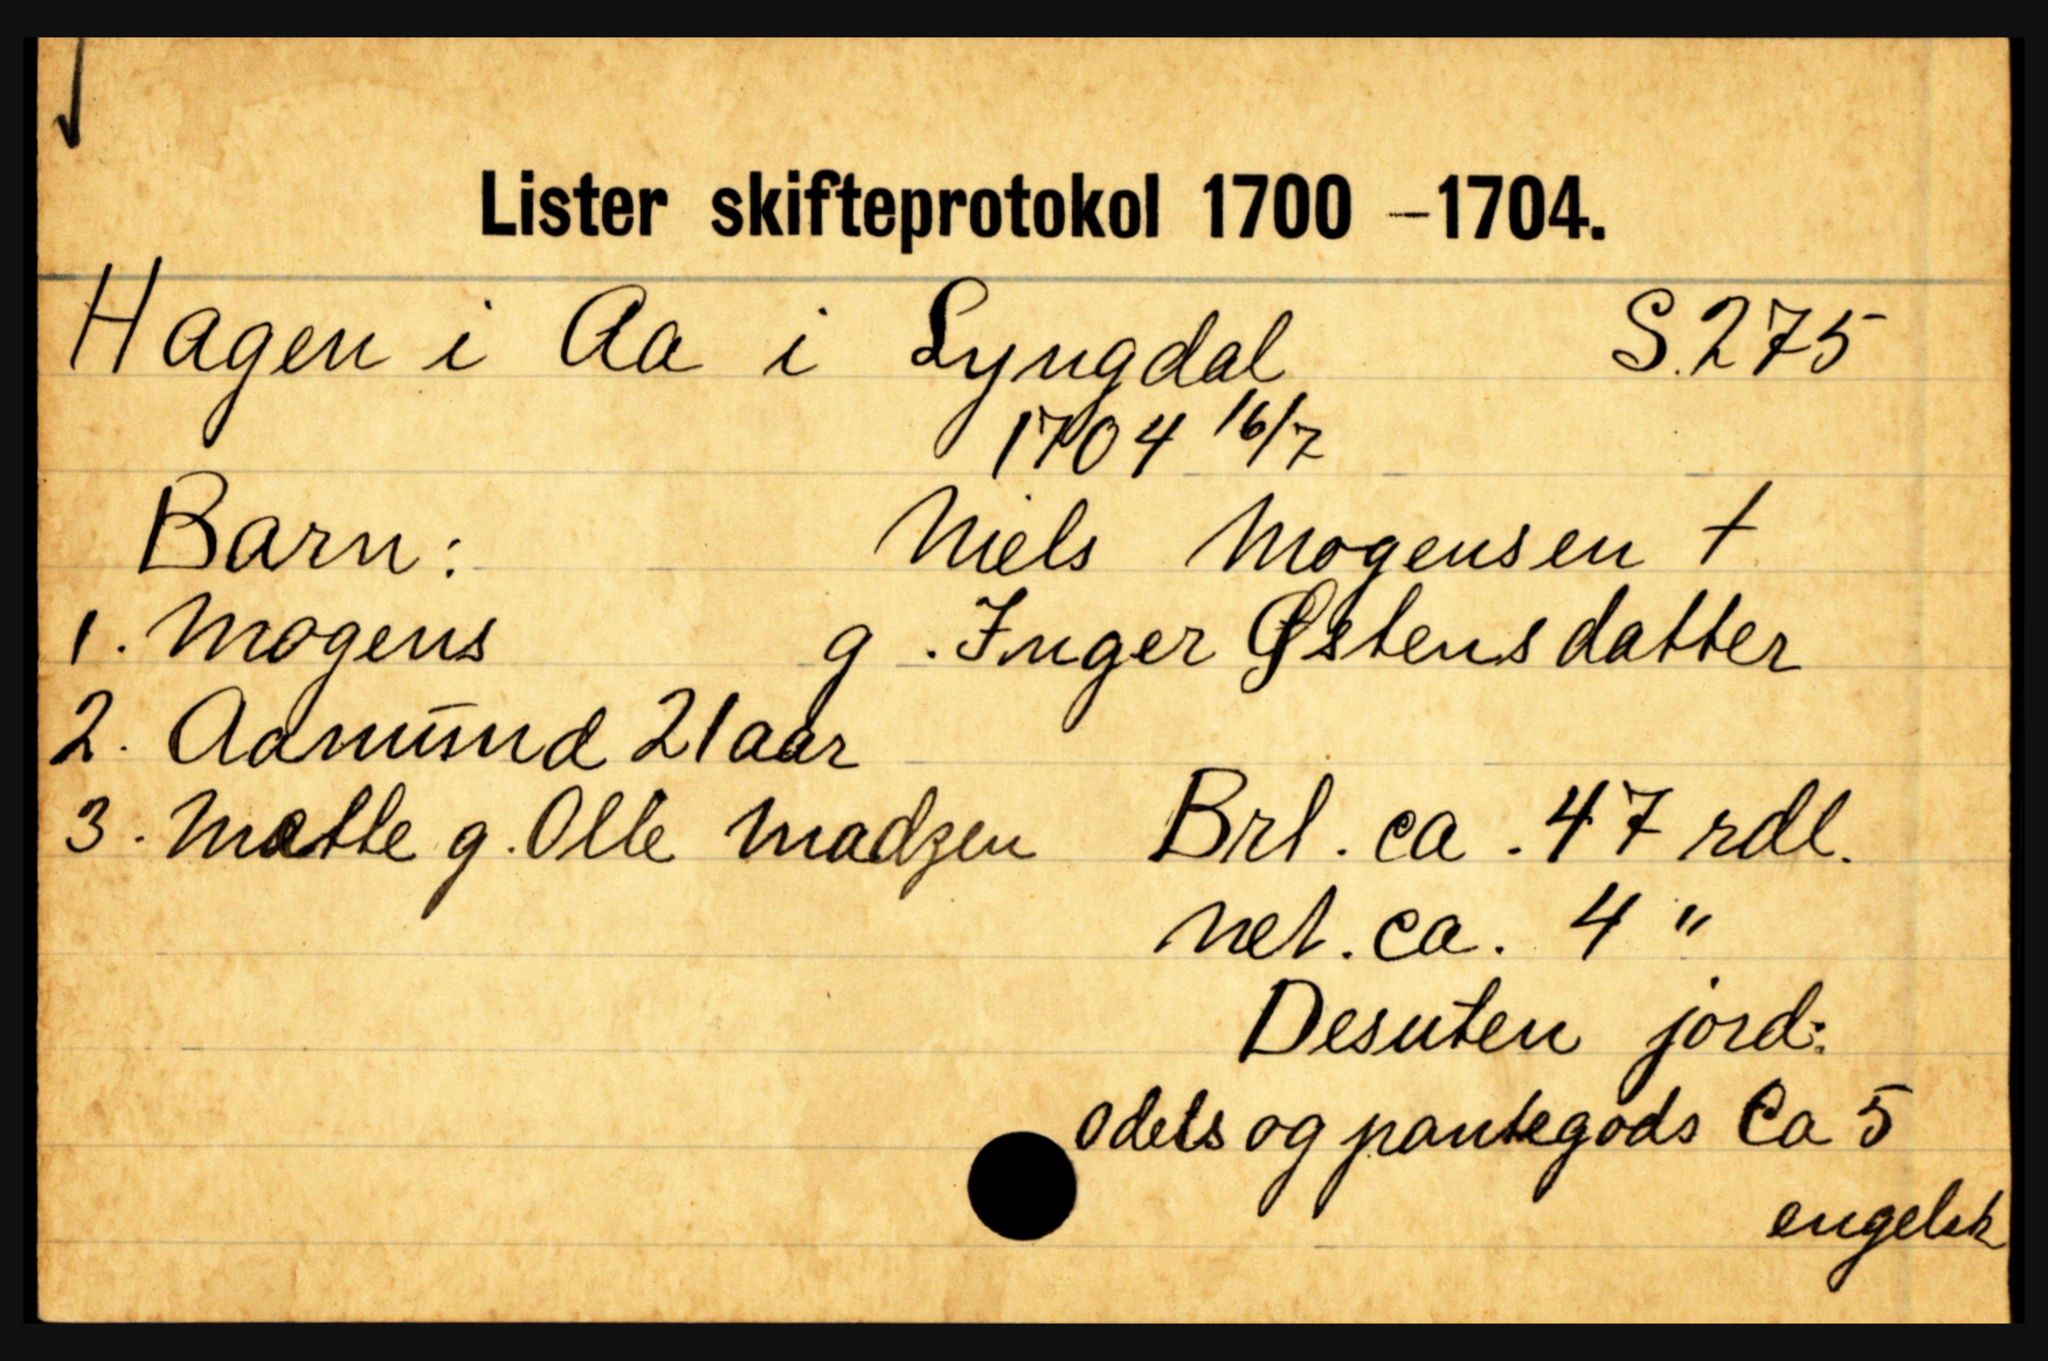 Lister skifteprotokol 1700 – 1704.
Hagen i Aa i Lyngdal S. 275
1704 16/7
Barn: Niels Mogensen †
1. Mogens g. Inger Østensdatter
2. Aamund 21 aar
3. Mette g. Olle Madzen Brt. ca. 47 rdl.
net. ca. 4 "
Desuten jord:
odels og pantegods Ca 5
engelsk